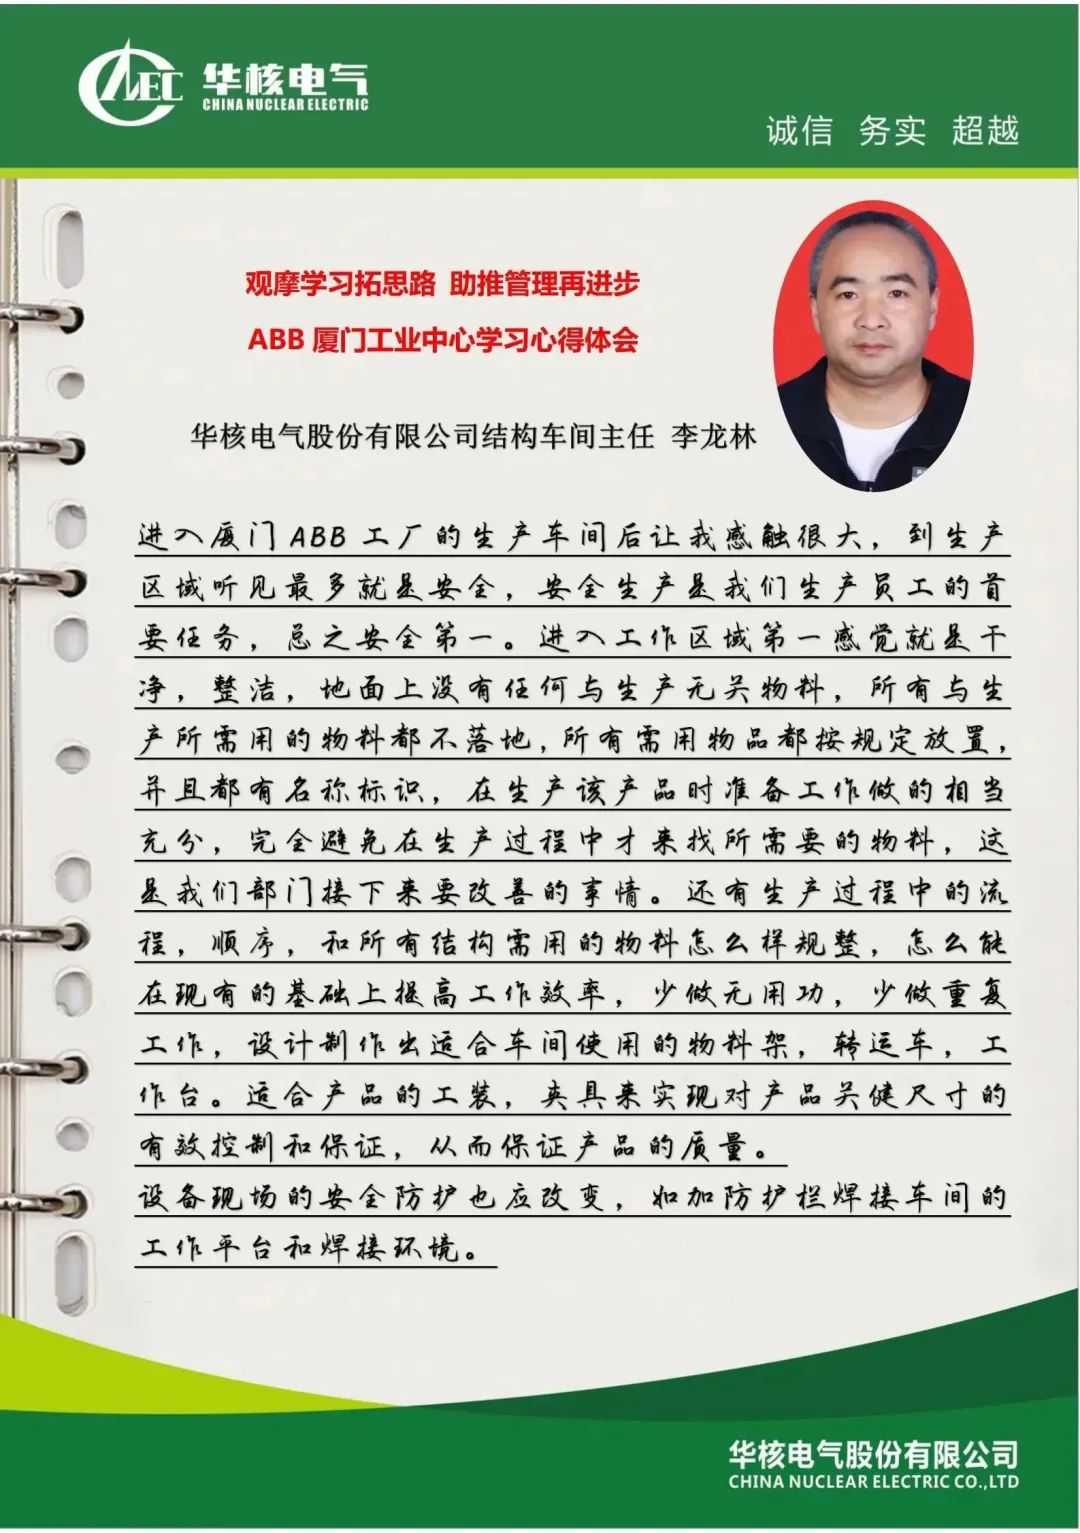 CNEC 华核电气
CHINA NUCLEAR ELECTRIC
诚信 务实 超越
观摩学习拓思路 助推管理再进步
ABB 厦门工业中心学习心得体会
华核电气股份有限公司结构车间主任 李龙林
进入厦门 ABB 工厂的生产车间后让我感触很大，到生产
区域听见最多就是安全，安全生产是我们生产员工的首
要任务，总之安全第一。进入工作区域第一感觉就是干
净，整洁，地面上没有任何与生产无关物料，所有与生
产所需用的物料都不落地，所有需用物品都按规定放置，
并且都有名称标识，在生产该产品时准备工作做的相当
充分，完全避免在生产过程中才来找所需要的物料，这
是我们部门接下来要改善的事情。还有生产过程中的流
程，顺序，和所有结构需用的物料怎么样规整，怎么能
在现有的基础上提高工作效率，少做无用功，少做重复
工作，设计制作出适合车间使用的物料架，转运车，工
作台。适合产品的工装，夹具来实现对产品关健尺寸的
有效控制和保证，从而保证产品的质量。
设备现场的安全防护也应改变，如加防护栏焊接车间的
工作平台和焊接环境。
华核电气股份有限公司
CHINA NUCLEAR ELECTRIC CO.,LTD